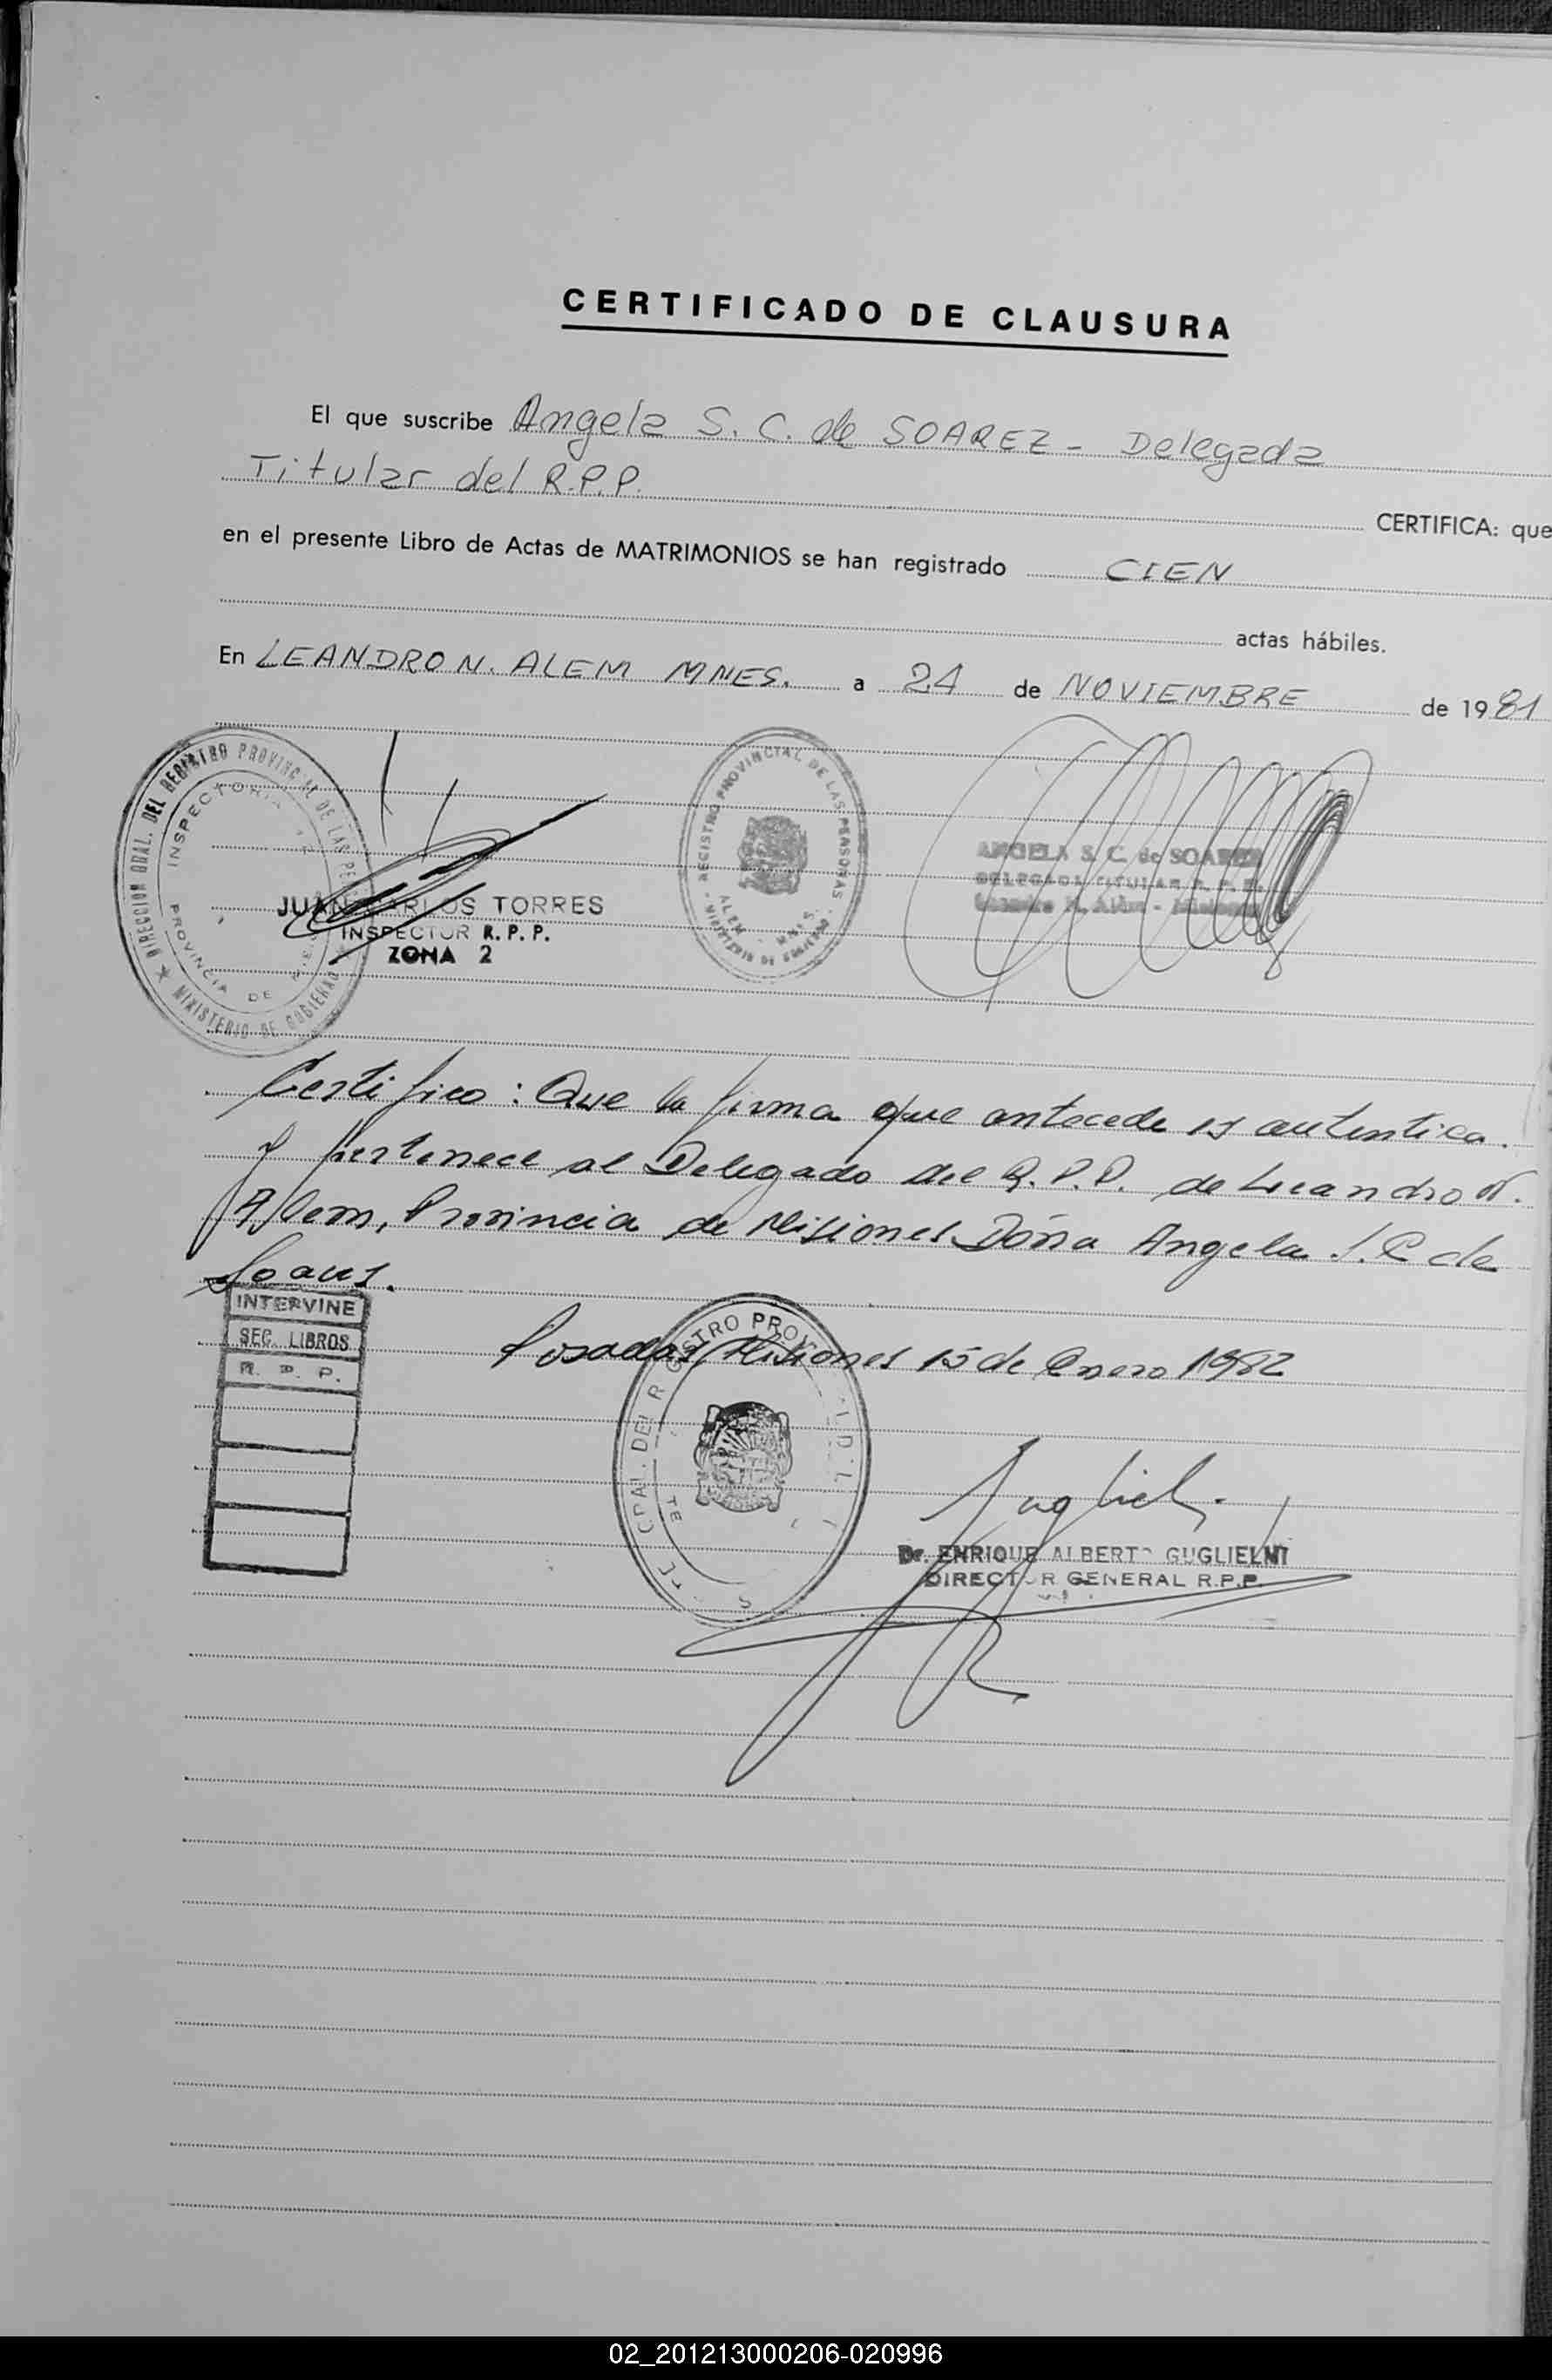 CERTIFICADO DE CLAUSURA
El que suscribe Angela S. C. de SOAREZ - Delegada
Titular del R.P.P. CERTIFICA: que
en el presente Libro de Actas de MATRIMONIOS se han registrado CIEN
actas hábiles.
En LEANDRO N. ALEM MNES. a 24 de NOVIEMBRE de 1981
DIRECCION GRAL. DEL REGISTRO PROVINCIAL DE LAS PE
MINISTERIO DE GOBIERNO
INSPECTORIA
PROVINCIA DE
JUAN CARLOS TORRES
INSPECTOR R. P. P.
ZONA 2
REGISTRO PROVINCIAL DE LAS PERSONAS
ALEM - MNES.
MINISTERIO DE GOBIERNO
ANGELA S. C. de SOAREZ
DELEGADA TITULAR R. P. P.
Leandro N. Alem - Misiones
Certifico: Que la firma que antecede es autentica.
y pertenece al Delegado del R.P.P. de Leandro N.
Alem, Provincia de Misiones Doña Angela S. C de
Soares.
INTERVINE
SEC. LIBROS
R. P. P.
Posadas, Misiones 15 de Enero 1982
GRAL. DEL R GISTRO PROV
Dr. ENRIQUE ALBERTO GUGLIELMI
DIRECTOR GENERAL R.P.P.
02_201213000206-020996